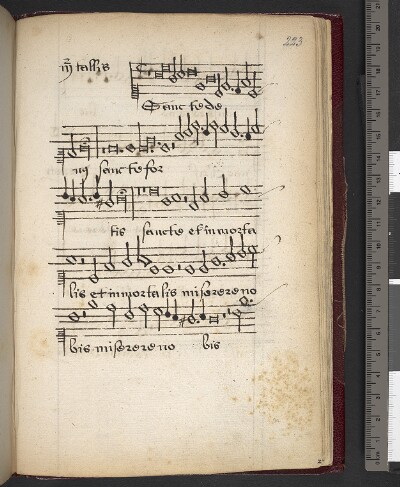 223
mr tallis
Sancte de
us sancte for
tis sancte et inmorta
lis et inmortalis miserere no
bis miserere no bis